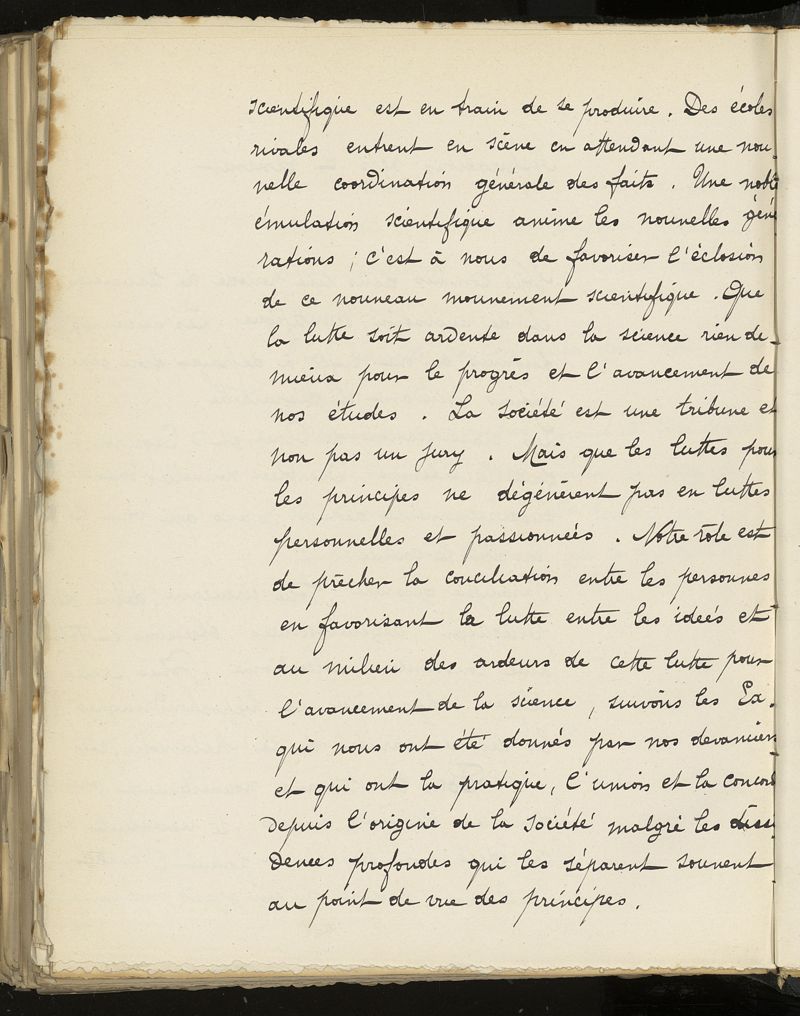 scientifique est en train de se produire. Des écoles
rivales entrent en scène en attendant une nou-
velle coordination générale des faits. Une noble
émulation scientifique anime les nouvelles géné
rations ; c'est à nous de favoriser l'éclosion
de ce nouveau mouvement scientifique. Que
la lutte soit ardente dans la science rien de-
mieux pour le progrès et l'avancement de
nos études. La Société est une tribune et
non pas un jury. Mais que les luttes pour
les principes ne dégénèrent pas en luttes
personnelles et passionnées. Notre rôle est
de prêcher la conciliation entre les personnes
en favorisant la lutte entre les idées et
au milieu des ardeurs de cette lutte pour
l'avancement de la science, suivons les Ex.
qui nous ont été donnés par nos devanciers
et qui ont la pratique, l'union et la concord
depuis l'origine de la Société malgré les dissi
dences profondes qui les séparent souvent
au point de vue des principes.